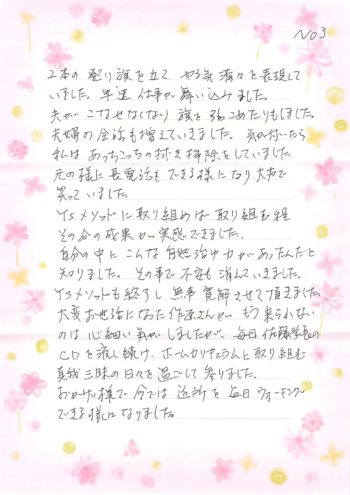 No3
2本の登り旗を立て やる気満々を表現して
いました。早速 仕事が舞い込みました。
夫がこなせなくなり 旗を引っこめたりもしました。
夫婦の会話も増えていきました。気が付いたら
私はあっちこっちの拭き掃除をしていました
元の様に長電話もできる様になり 大声で
笑っていました。
YSメソッドに取り組めば 取り組む程
その分の成果が実感できました。
自分の中にこんな自然治ゆ力があったんだと
知りました。その事で 不安も消えていきました。
YSメソッドも終了し 無事 寛解させて頂きました。
大変お世話になった作原さんが もう来られない
のは 心細い気がしましたが、毎日 佐藤学長の
CDを流し続け、ホームカリキュラムと取り組む
真我三昧の日々を過ごして参りました。
おかげ様で 今では 近所を 毎日 ウォーキング
できる様になりました。